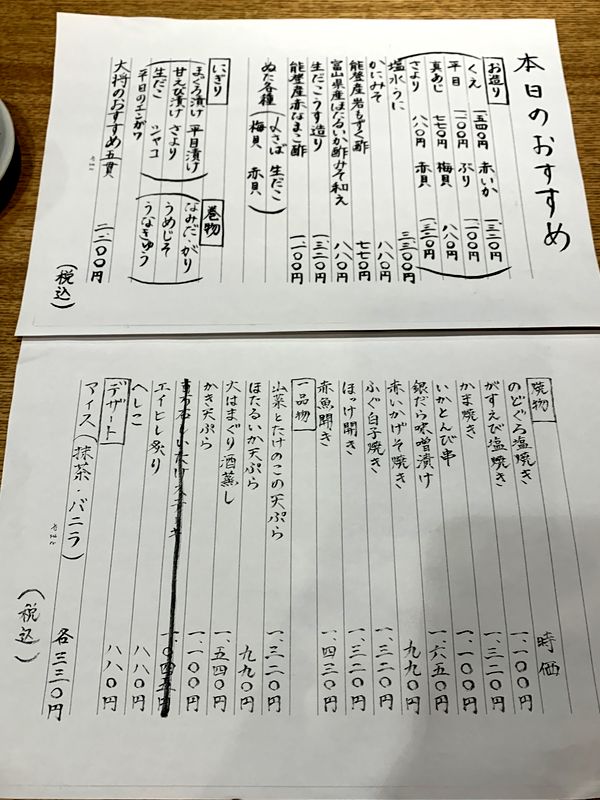 本日のおすすめ
お造り
くえ 一、五四〇円 赤いか 一、三二〇円
平目 一、一〇〇円 ぶり 一、一〇〇円
真あじ 七七〇円 梅貝 八八〇円
さより 八八〇円 赤貝 一、三二〇円
塩水うに 三、三〇〇円
かにみそ 八八〇円
能登産岩もずく酢 七七〇円
富山県産ほたるいか酢みそ和え 八八〇円
生だこうす造り 一、三二〇円
能登産赤なまこ酢 一、一〇〇円
ぬた各種(〆さば 生だこ
梅貝 赤貝)
にぎり
まぐろ漬け 平目漬け
甘えび漬け さより
生だこ シャコ
平目のエンガワ
巻物
なみだ がり
うめじそ
うなきゅう
大将のおすすめ五貫 二、二〇〇円
(税込)
焼物
のどぐろ塩焼き 時価
がすえび塩焼き 一、一〇〇円
かま焼き 一、三二〇円
いかとんび串 一、一〇〇円
銀だら味噌漬け 一、六五〇円
赤いかげそ焼き 九九〇円
ふぐ白子焼き 一、三二〇円
ほっけ開き 一、三二〇円
赤魚開き 一、四三〇円
一品物
山菜とたけのこの天ぷら 一、三二〇円
ほたるいか天ぷら 九九〇円
大はまぐり酒蒸し 一、五四〇円
かき天ぷら 一、一〇〇円
一、〇四五円
エイヒレ炙り 八八〇円
へしこ 八八〇円
デザート
アイス(抹茶・バニラ) 各三三〇円
(税込)